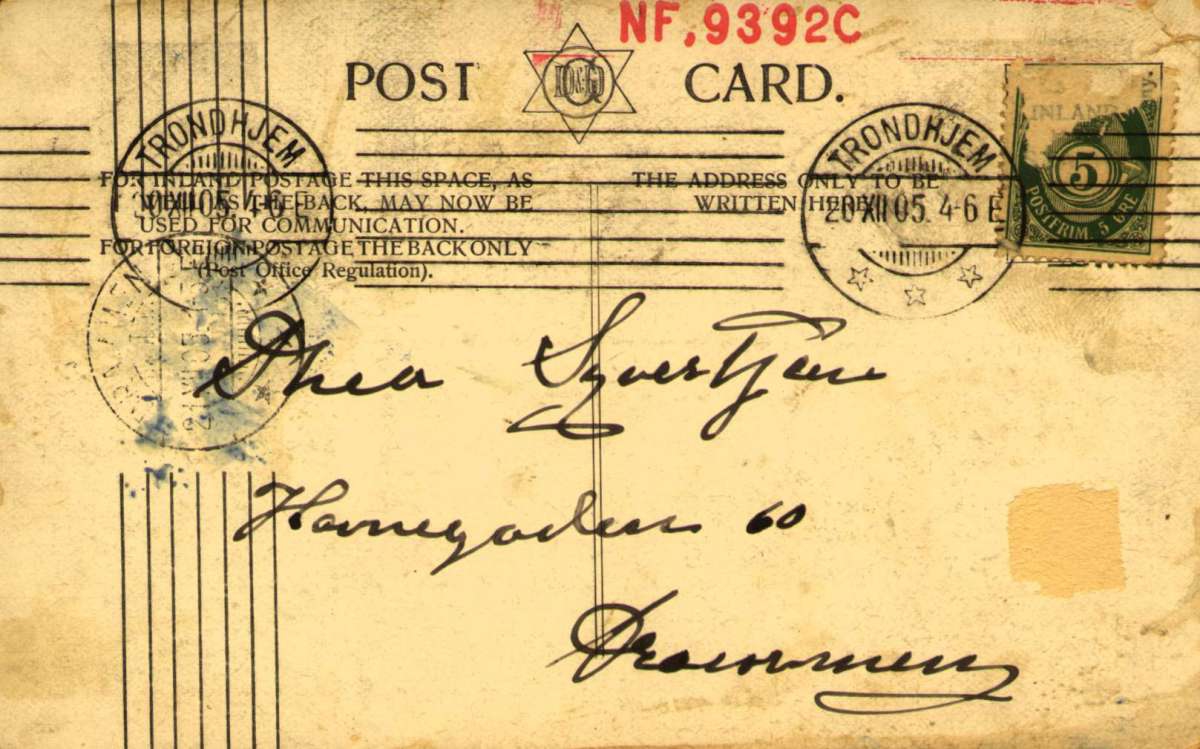 NF.9392C
POST CARD.
D&G
FOR INLAND POSTAGE THIS SPACE, AS
WELL AS THE BACK, MAY NOW BE
USED FOR COMMUNICATION.
FOR FOREIGN POSTAGE THE BACK ONLY
(Post Office Regulation).
THE ADDRESS ONLY TO BE
WRITTEN HERE
TRONDHJEM
20 XII 05. 4-6 E
TRONDHJEM
20 XII 05. 4-6 E
INLAND
5
POSTFRIM. 5 ØRE
Thea Syvertsen
Havnegaden 60
Drammen